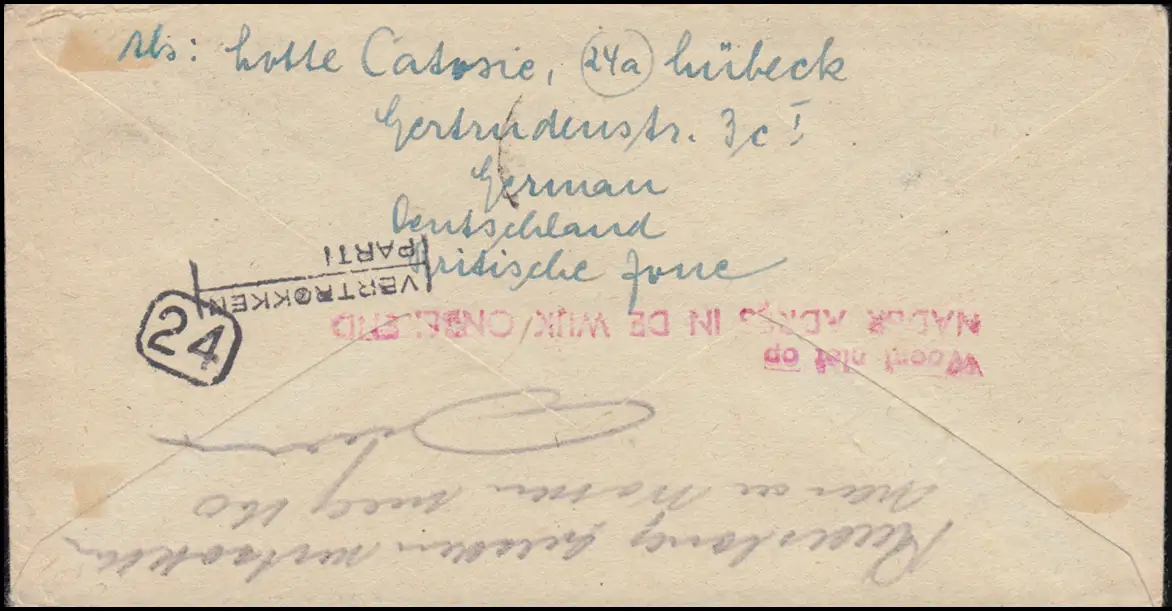 Abs: Lotte Catosie, 24a Lübeck
Gertrudenstr. 3c I
German
Deutschland
Britische Zone
PARTI
VERTROKKEN
24
Woont niet op
NADER ADRES IN DE WIJK ONBEKEND
lang geleden vertrokken